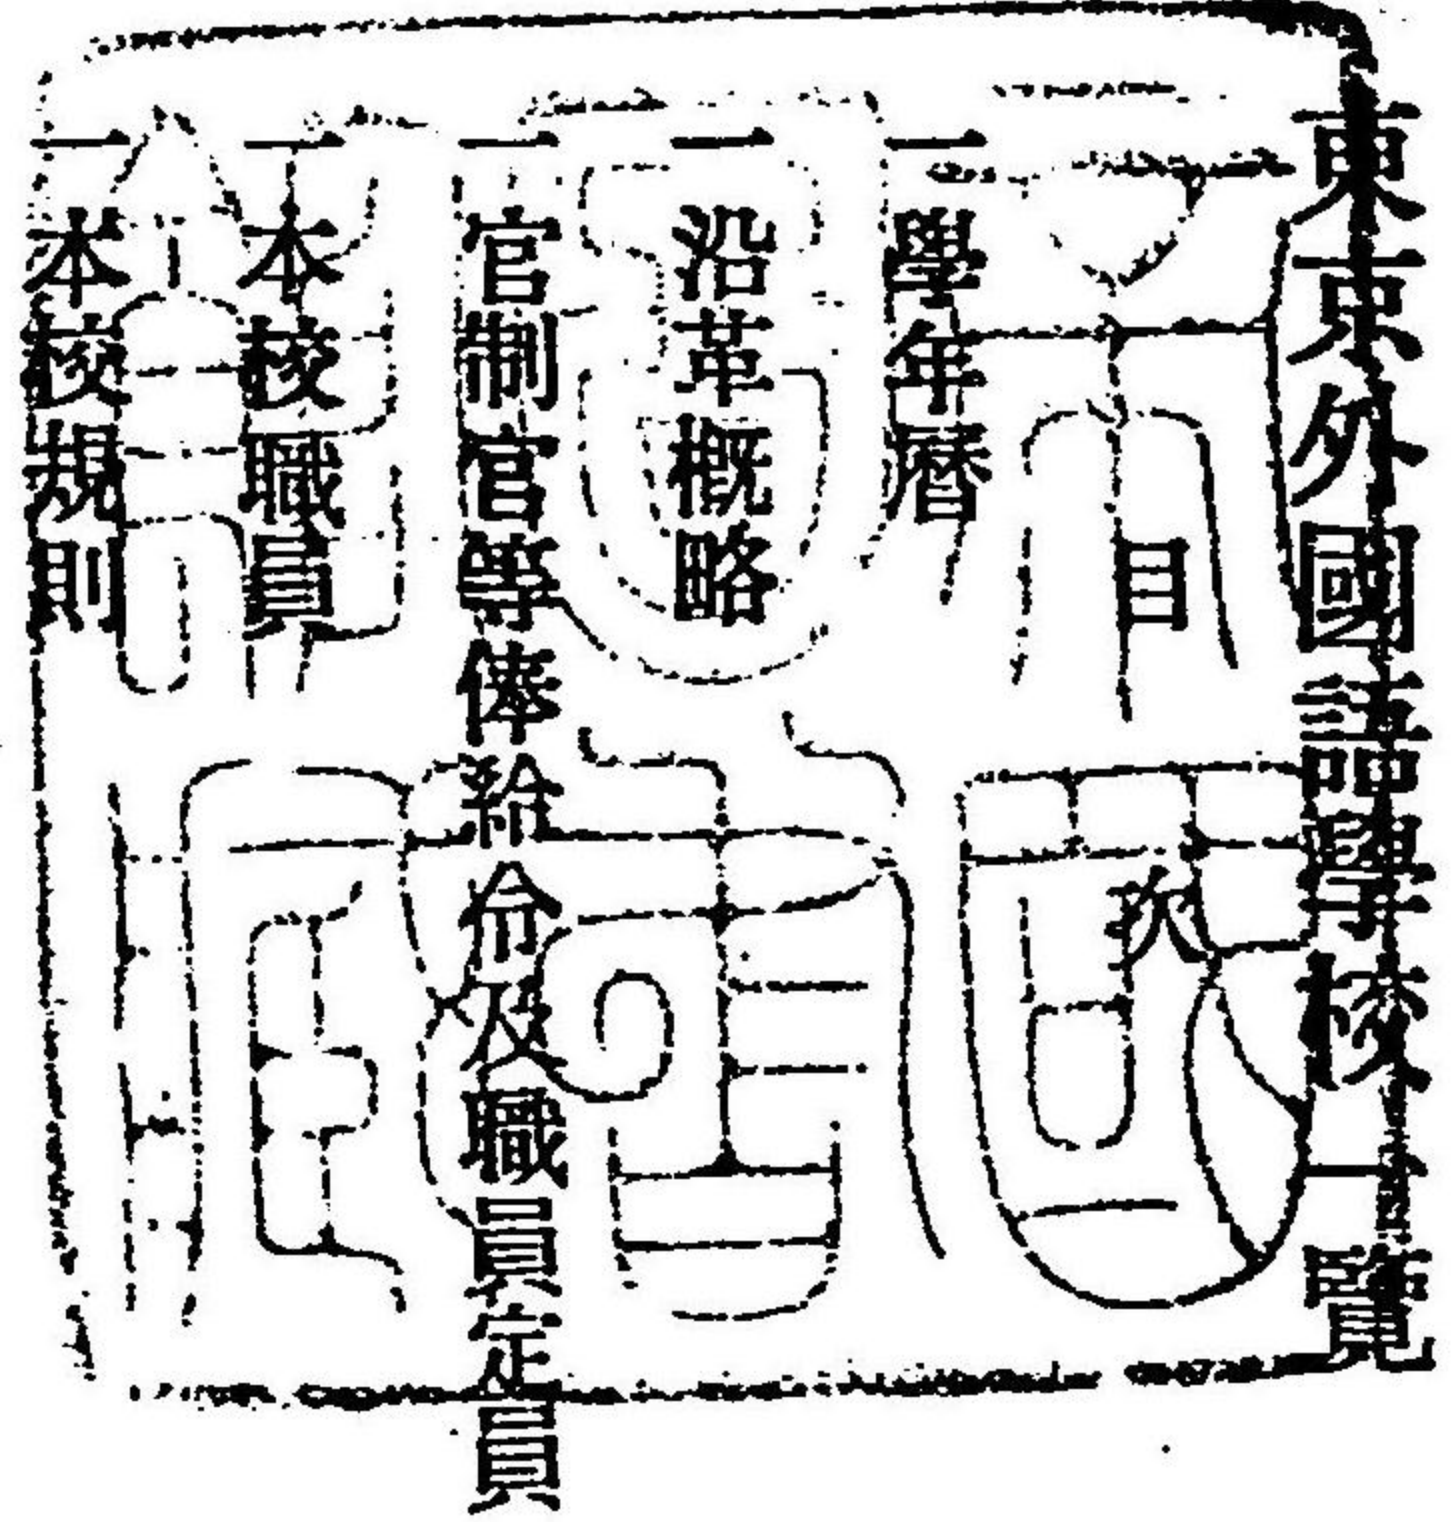 東京外國語學校一覽
目次
一學年曆
一沿革概略
一官制官等俸給令及職員定員
一本校職員
一本校規則